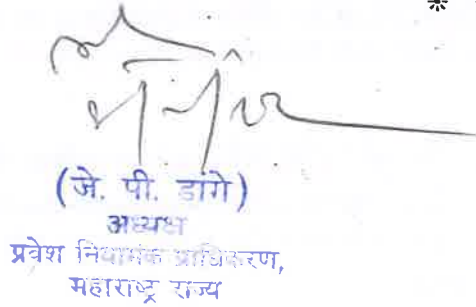 *
(जे. पी. डांगे)
अध्यक्ष
प्रवेश नियामक प्राधिकरण,
महाराष्ट्र राज्य